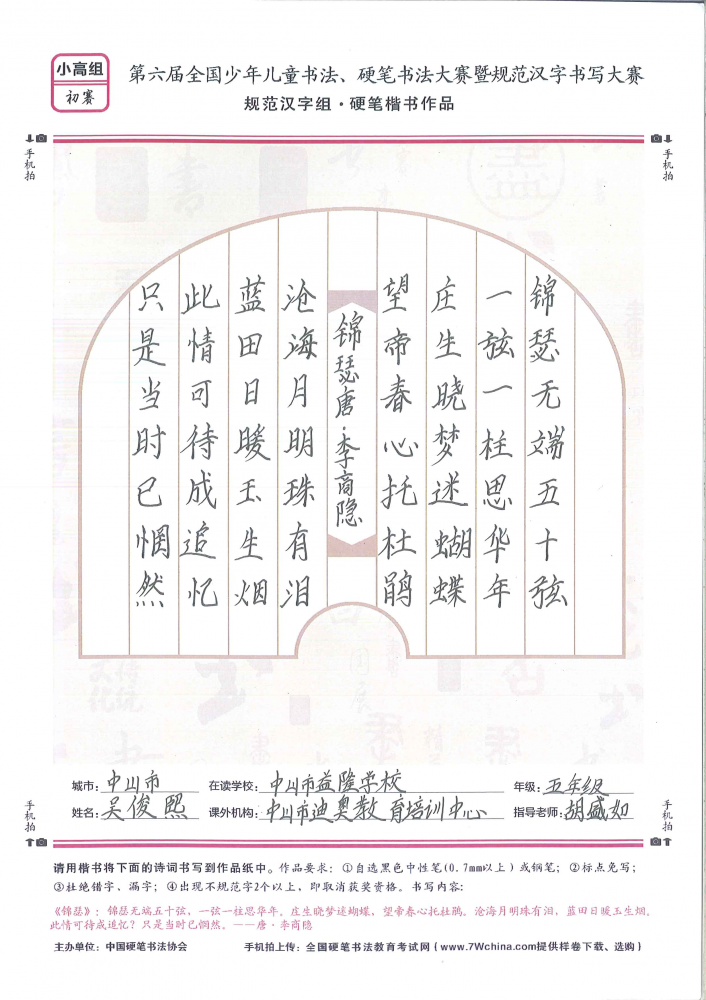 小高组
初赛
第六届全国少年儿童书法、硬笔书法大赛暨规范汉字书写大赛
规范汉字组·硬笔楷书作品
手机拍
手机拍
锦瑟无端五十弦
一弦一柱思华年
庄生晓梦迷蝴蝶
望帝春心托杜鹃
锦瑟唐·李商隐
沧海月明珠有泪
蓝田日暖玉生烟
此情可待成追忆
只是当时已惘然
城市:中山市 在读学校:中山市益隆学校 年级:五年级
姓名:吴俊熙 课外机构:中山市迪奥教育培训中心 指导老师:胡盛如
手机拍
手机拍
请用楷书将下面的诗词书写到作品纸中。作品要求:①自选黑色中性笔(0.7mm以上)或钢笔;②标点免写;
③杜绝错字、漏字;④出现不规范字2个以上,即取消获奖资格。书写内容:
《锦瑟》:锦瑟无端五十弦,一弦一柱思华年。庄生晓梦迷蝴蝶,望帝春心托杜鹃。沧海月明珠有泪,蓝田日暖玉生烟。
此情可待成追忆?只是当时已惘然。——唐·李商隐
主办单位:中国硬笔书法协会 手机拍上传:全国硬笔书法教育考试网{www.7Wchina.com提供样卷下载、选购}